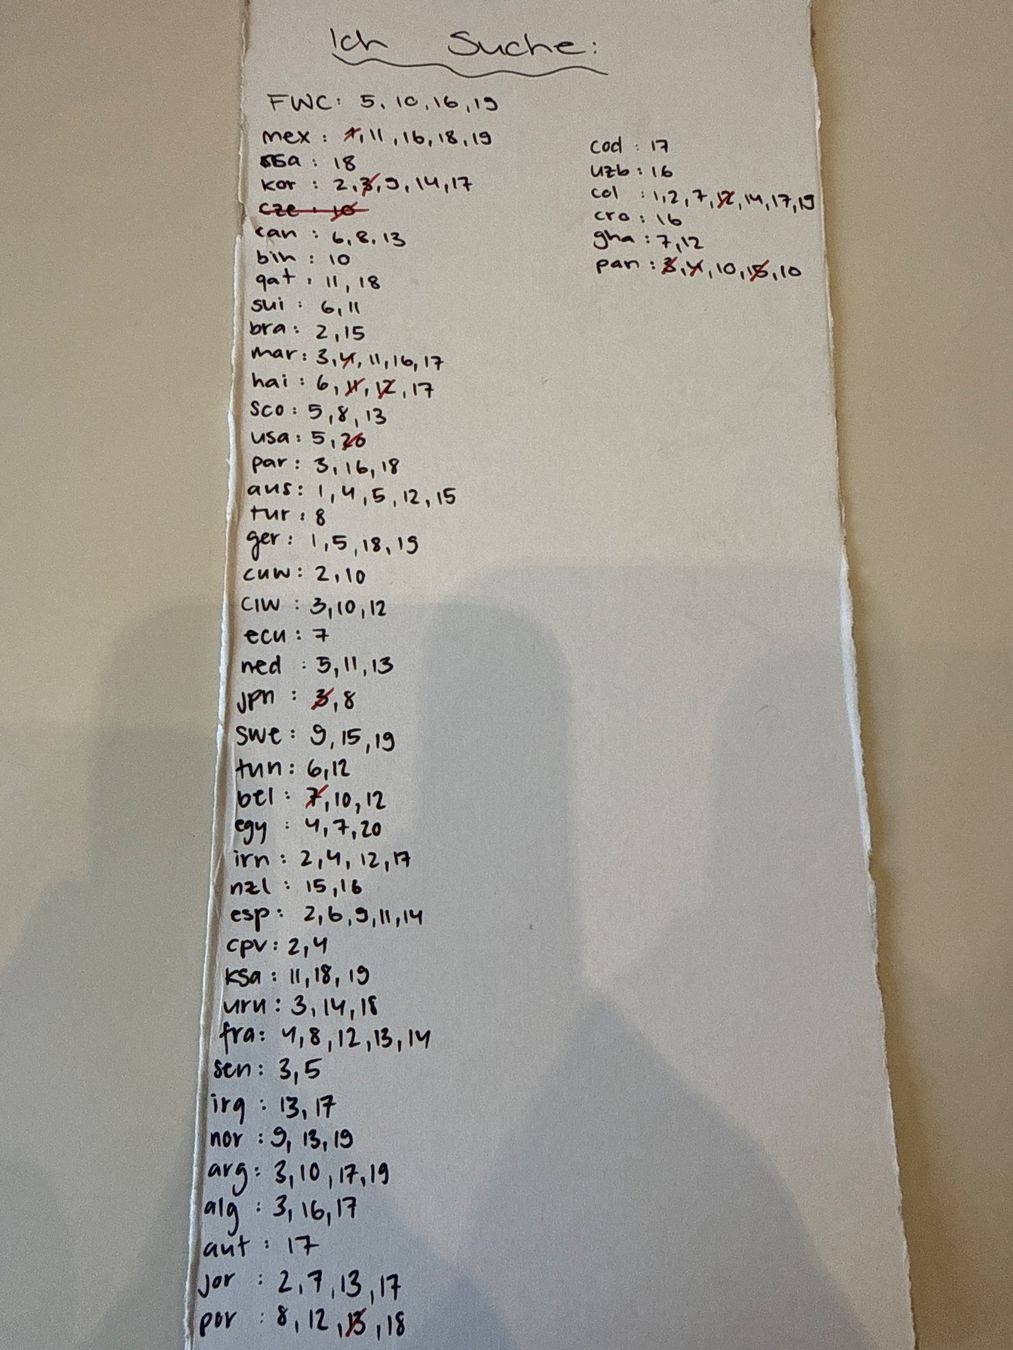 Ich Suche:
FWC: 5, 10, 16, 19
mex : 1, 11, 16, 18, 19
rsa : 18
kor : 2, 3, 9, 14, 17
cze : 10
can : 6, 8, 13
bih : 10
qat : 11, 18
sui : 6, 11
bra : 2, 15
mar : 3, 4, 11, 16, 17
hai : 6, 11, 12, 17
sco : 5, 8, 13
usa : 5, 20
par : 3, 16, 18
aus : 1, 4, 5, 12, 15
tur : 8
ger : 1, 5, 18, 19
cuw : 2, 10
CIW : 3, 10, 12
ecu : 7
ned : 5, 11, 13
jpn : 3, 8
swe : 9, 15, 19
tun : 6, 12
bel : 7, 10, 12
egy : 4, 7, 20
irn : 2, 4, 12, 17
nzl : 15, 16
esp : 2, 6, 9, 11, 14
cpv : 2, 4
ksa : 11, 18, 19
uru : 3, 14, 18
fra : 4, 8, 12, 13, 14
sen : 3, 5
irq : 13, 17
nor : 9, 13, 19
arg : 3, 10, 17, 19
alg : 3, 16, 17
aut : 17
jor : 2, 7, 13, 17
por : 8, 12, 13, 18
cod : 17
uzb : 16
col : 1, 2, 7, 12, 14, 17, 19
cro : 16
gha : 7, 12
pan : 3, 4, 10, 15, 10